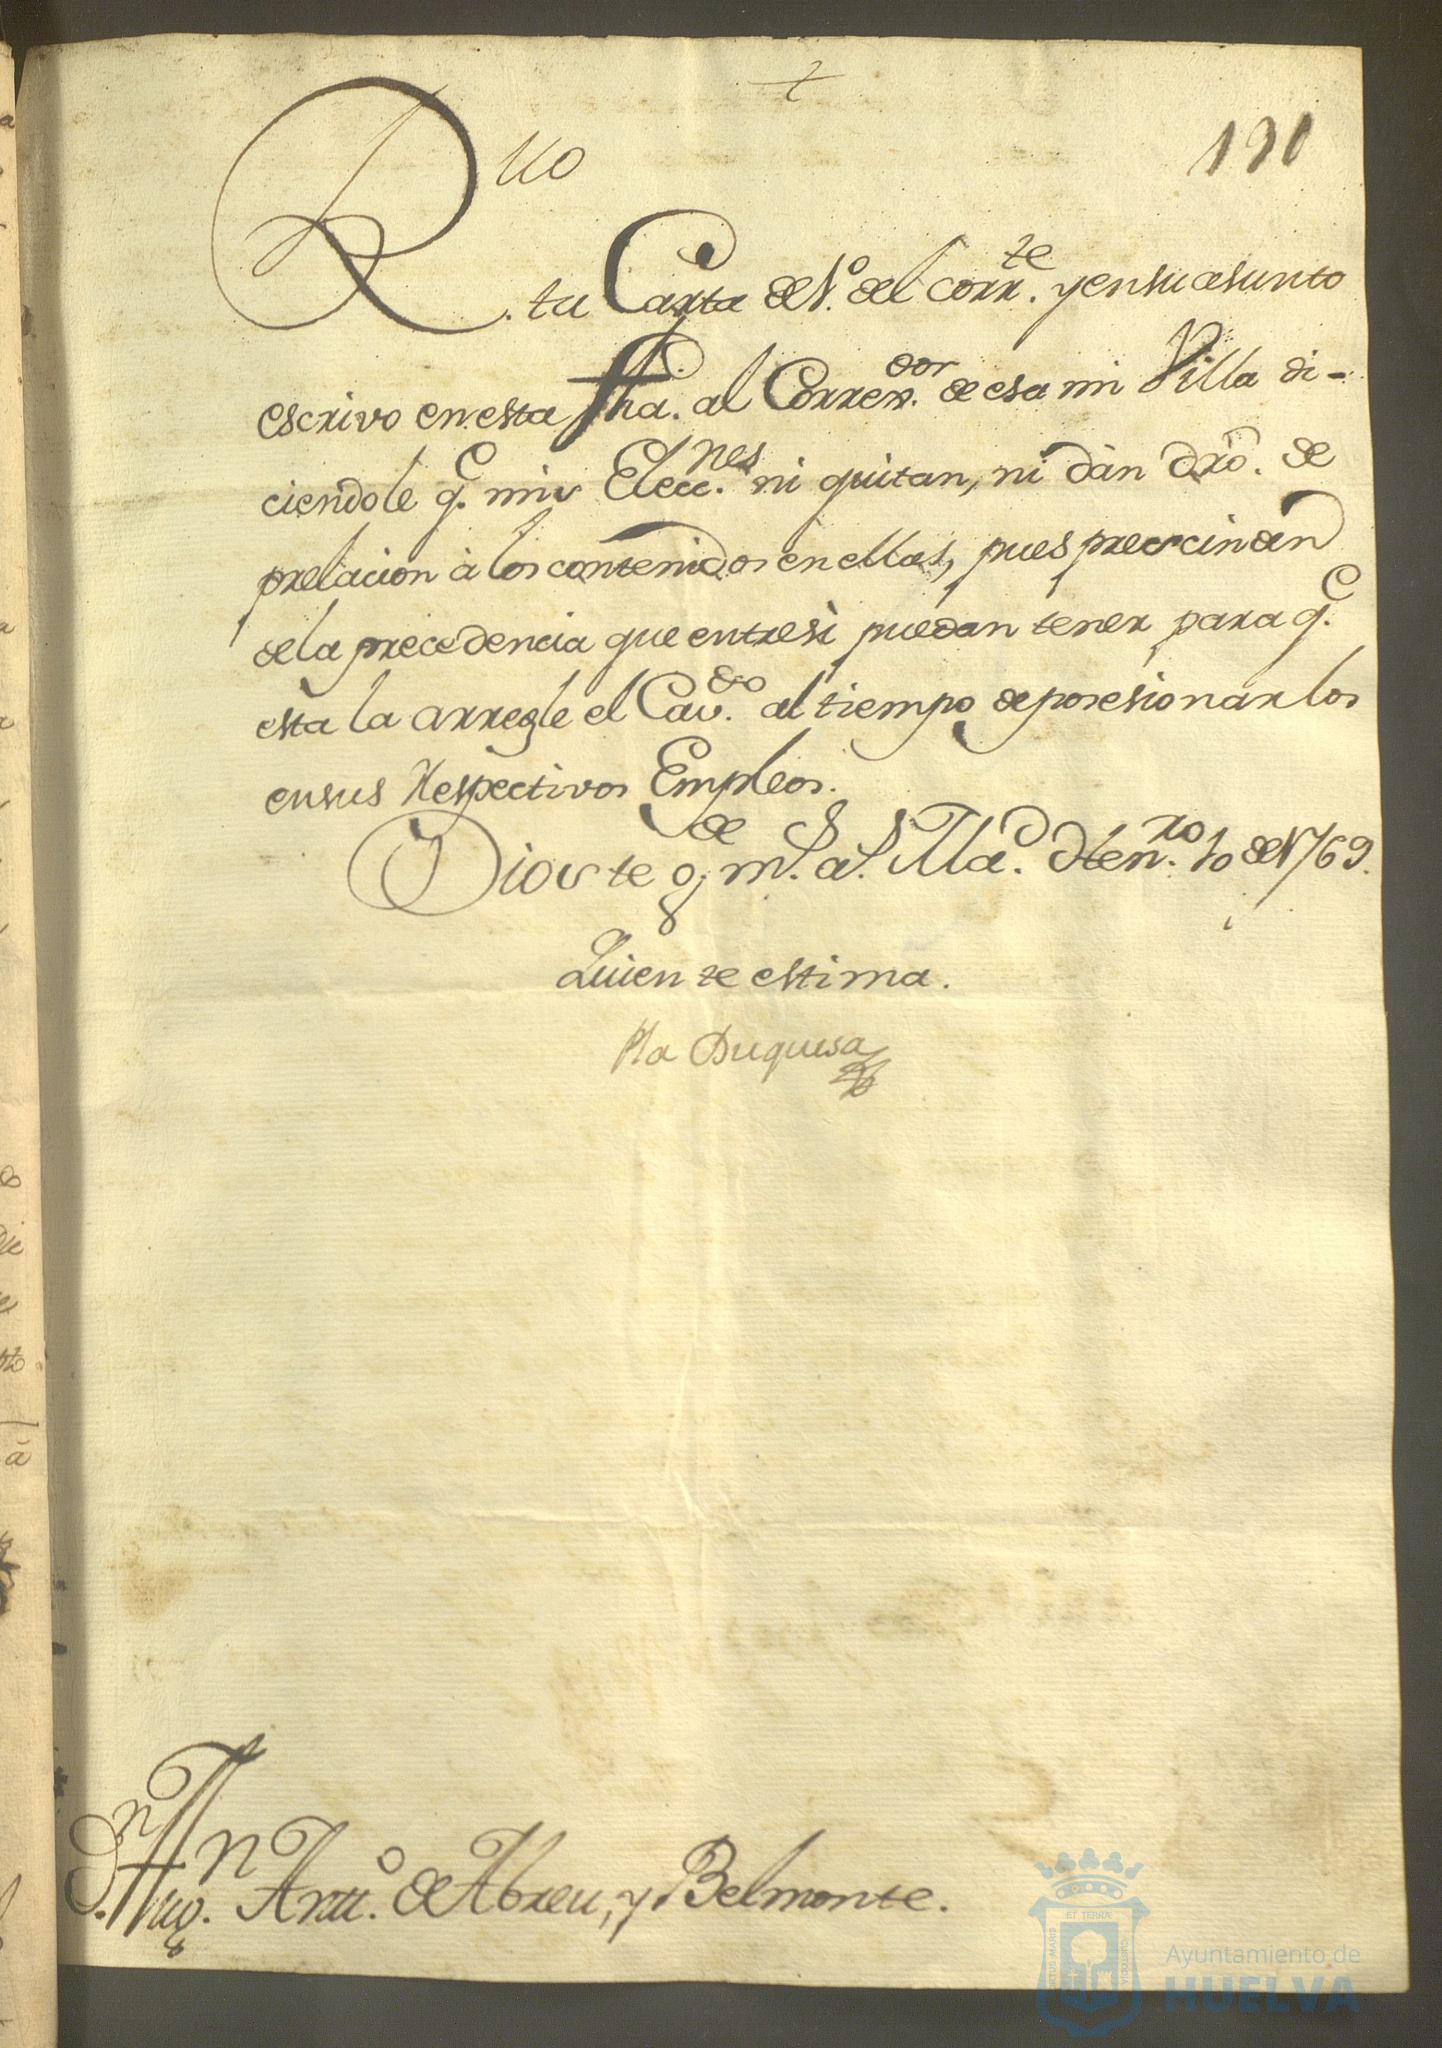 †
190
Rvo
tu Carta de 1.º del corr.te y en su asunto
escrivo en esta fha. al Correx.dor de esa mi Villa di-
ciendole q.e mis Elecc.nes ni quitan, ni dàn dr̃o. de
prelacion à los contenidos en ellas, pues prescinden
de la precedencia que entresì puedan tener para q.e
esta la arregle el Cav.do al tiempo de posesionarlos
en sus respectivos Empleos.
Dios te g.de m.s a.s Mad.d Hen.ro 10 de 1769.
Quien te estima.
la Duquesa
D.n Aug.n Ant.º de Abreu, y Belmonte.
ET TERRÆ
PORTUS MARIS
CUSTODIA
Ayuntamiento de
HUELVA